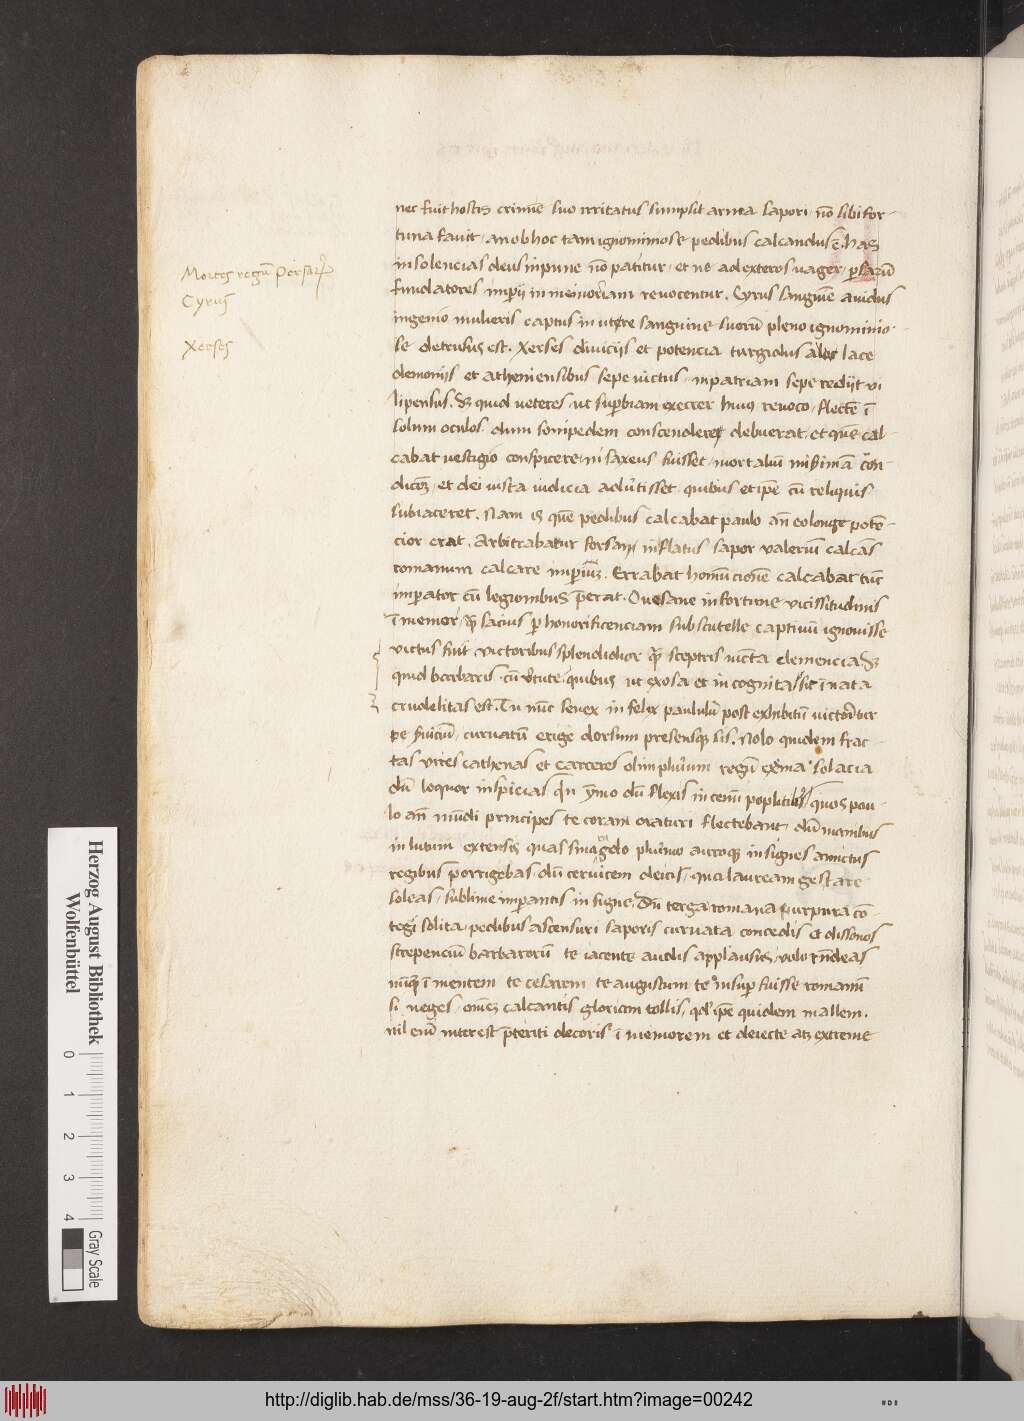 Mortes regū Persarꝝ
Cyrus
Xerses
nec fuit hostis crimīe suo irritatus sumpsit arma sapori nō sibi for-
tuna fauit, an ob hoc tam ignominiose pedibus calcandus ē. has
insolencias deus inpune nō patitur, et ne ad exteros uager, psarū
fundatores imp̄ij in memoriam reuocentur. Cyrus sanguīe auidus
ingenio mulieris captus in utere sanguine suorū pleno ignominio-
se detrusus est. Xerses diuicijs et potencia turgidus a lace
demonijs et atheniensibus sepe uictus in patriam sepe redijt ui
lipensus. Sz quid ueteres, ut supbiam execrer huiꝰ reuoco, flectē ī
solum oculos dum sonipedem conscenderet debuerat, et quē cal-
cabat uestigio conspicere, ni saxeus fuisset, mortaliū
dicōz, et dei iusta iudicia aduertisset quibus et ipē cū reliquis
subiaceret. Nam is quē pedibus calcabat paulo añ eo longe potē-
cior erat. Arbitrabatur forsan inflatus sapor ualeriū calcās
romanum calcare imperiuz. Errabat homūcionē calcabat tūc
imperator cū legionibus pierat. O uesane in fortune uicissitudinis
īmemor, sacius p honorificenciam subscutelle captiuū ignouisse
uictus fuit, uictoribus splendidior sceptris iūcta clemencia Sz
quid barbaris cū uertute, quibus ut exosa et incognita, sic īnata
crudelitas est. Tu nūc senex infelix paululū post exhibitū uictori tur
pe, curuatū erige dorsum presensq sis. Nolo quidem frac-
tas uires cathenas et carceres olim pluriūm regū solacia
dū loquor inspicias, ymo dū flexis in cenū poplitibꝰ, quos pau-
lo añ mūdi principes te coram oraturi flectebant dū manibus
in lutum extensis, quas smaragdo plurimo auroqz insignes amictus
regibus porrigebas, dū ceruicem deicis, qui lauream gestare
soleas, sublime imperantis insigne, Dū terga romana purpura cō-
tegi solita, pedibus ascensuri saporis curuata concedis et dissonos
strepenciū barbarorū te iacente audis applausus, uolo
ī mentem te cesarem te augustum te insup fuisse romanū
si neges, omēz calcantis gloriam tollis, qd ipē quidem mallem.
nil enī interest p̄teriti decoris īmemorem et deiecte atz extreme
Herzog August Bibliothek
Wolfenbüttel
0 1 2 3 4
Gray Scale
http://diglib.hab.de/mss/36-19-aug-2f/start.htm?image=00242